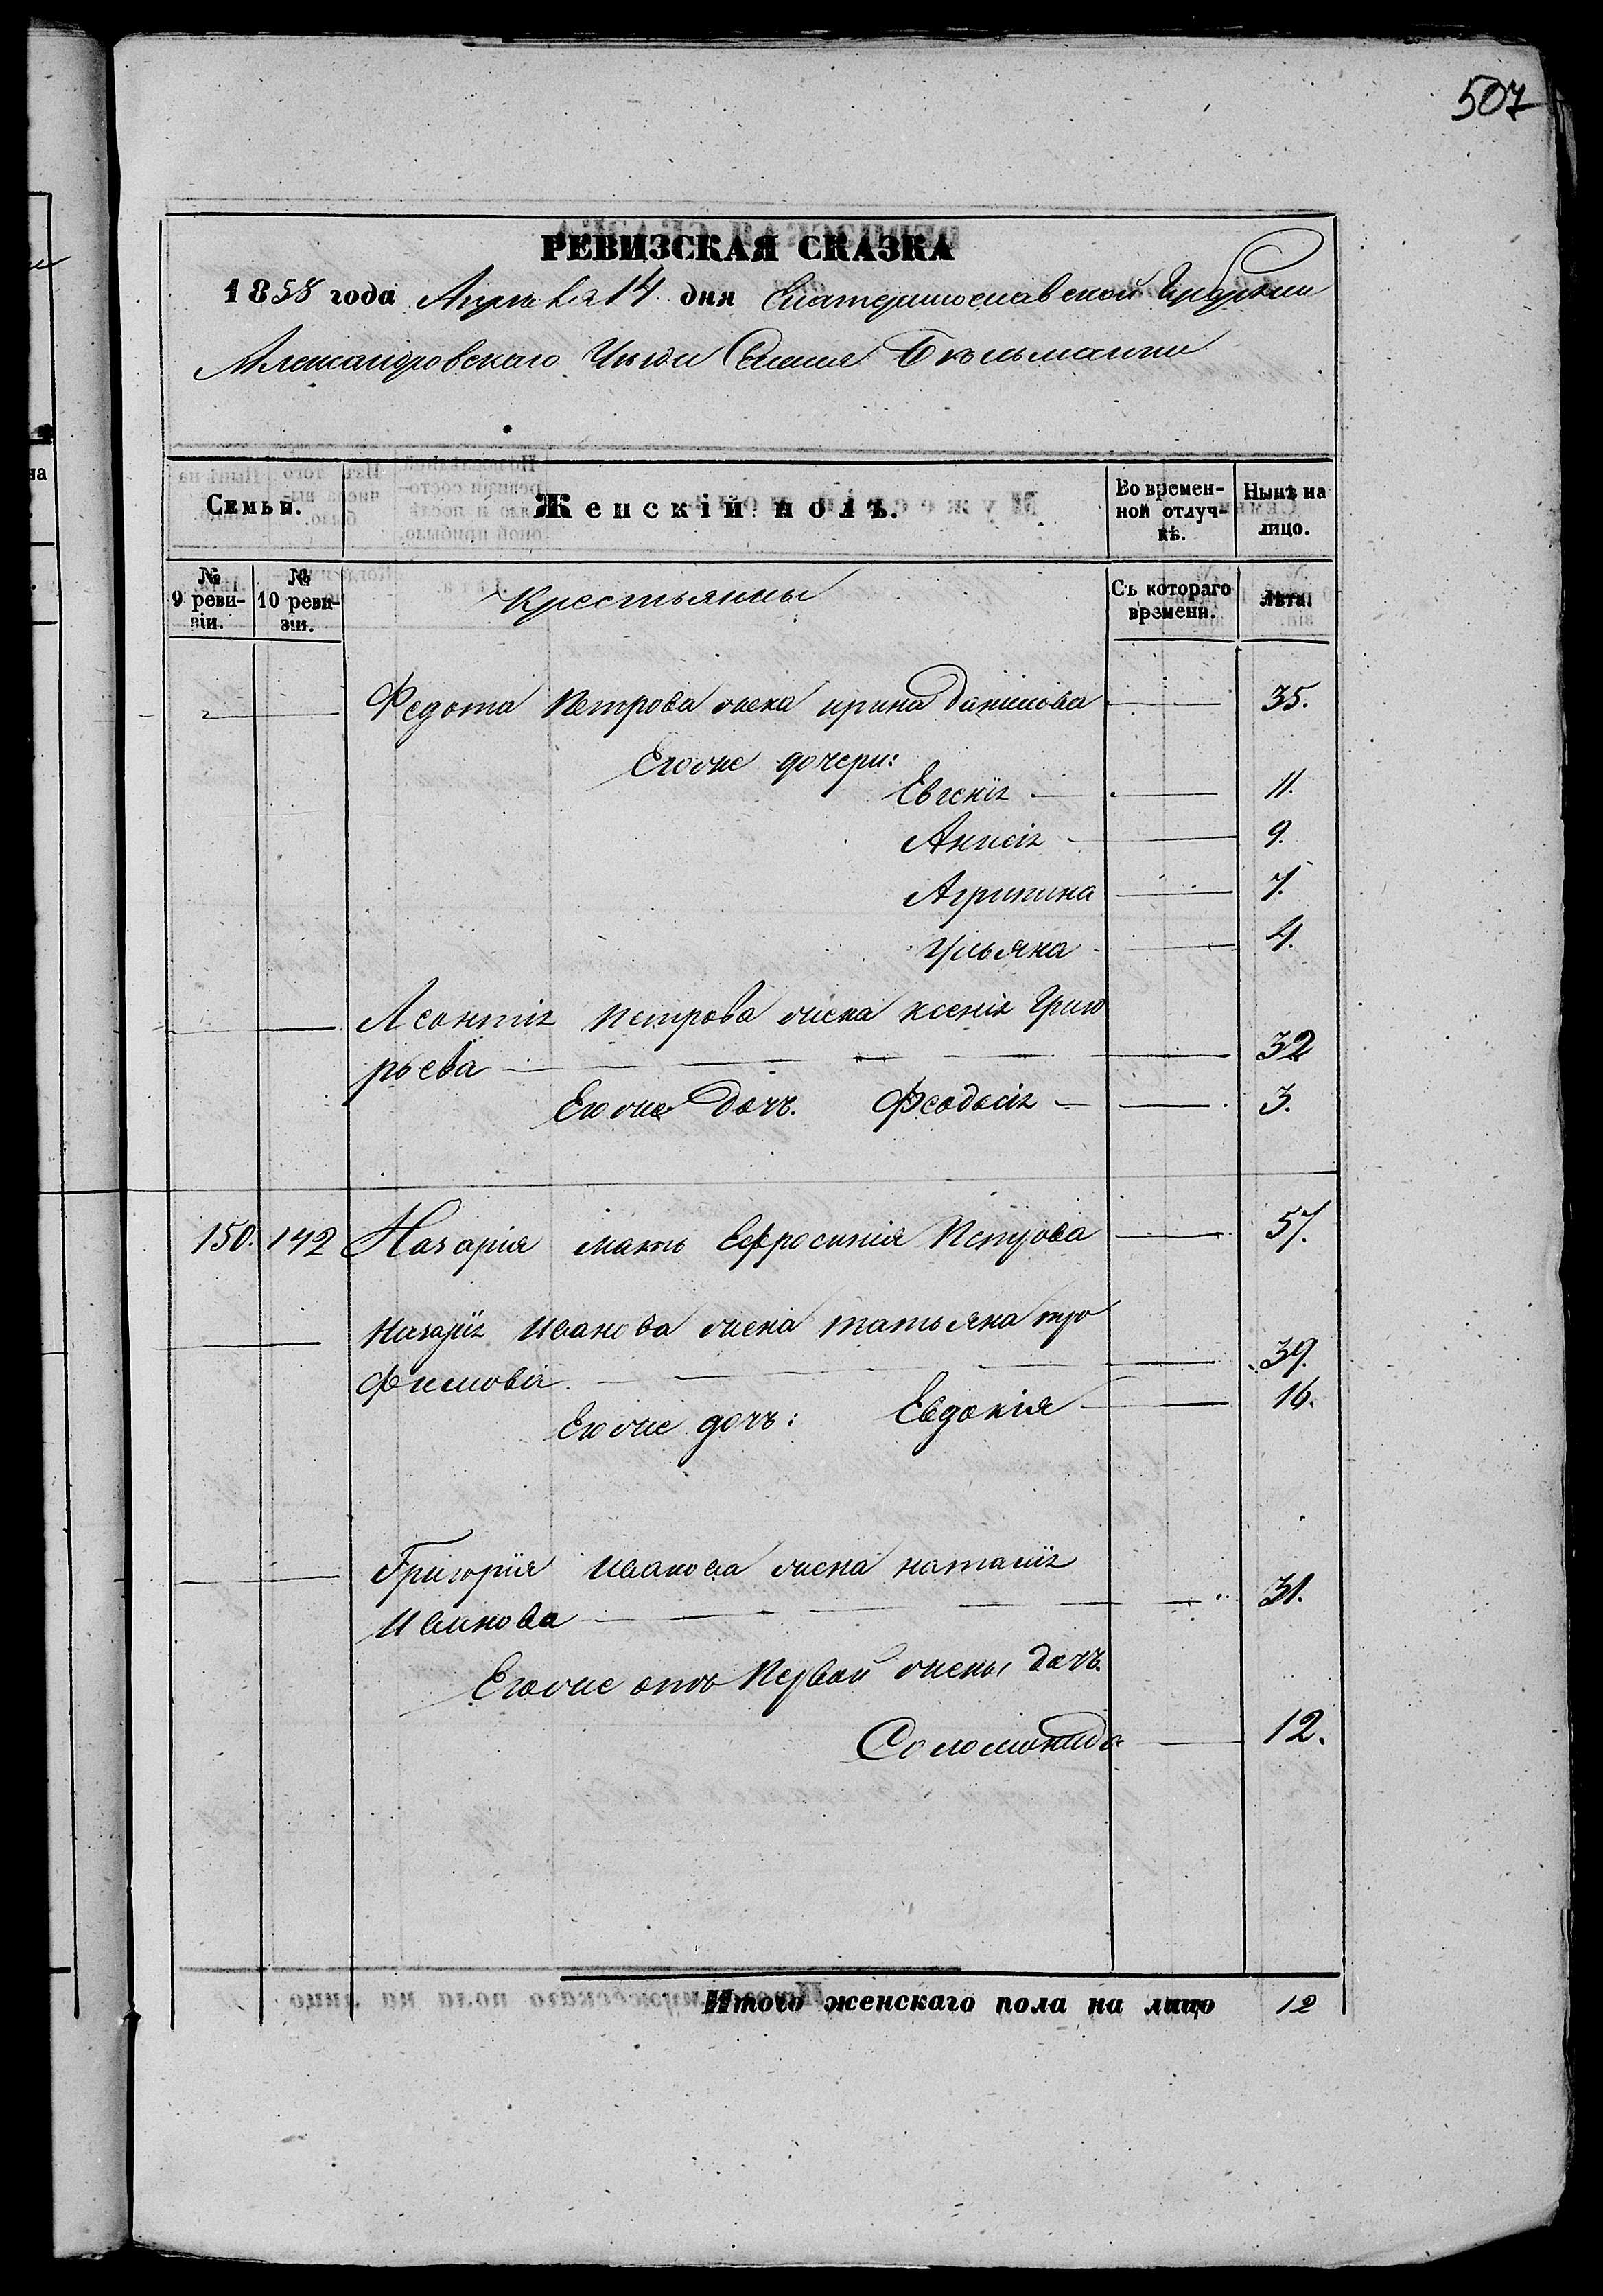 507
РЕВИЗСКАЯ СКАЗКА
1858 года Апреля 14 дня Екатеринославской Губернии
Александровскаго Уезда Селения Бѣльманки
Семьи.
Женскій полъ.
Во времен-
ной отлуч-
кѣ.
Нынѣ на
лицо.
№
9 реви-
зіи.
№
10 реви-
зіи.
Крестьянины
Съ котораго
времени.
Лѣта.
Федота Петрова жена ирина Данилова 35.
Егоже дочери:
Евгенія 11.
Анисія 9.
Агрипина 7.
Ульяна 4.
Леонтія Петрова жена ксенія Григо
рьева 32
Егоже Дочь. Феодосія 3.
150. 142 Назарія мать Ефросинія Петрова 57.
Назарія Иванова жена татьяна тро
фимова 39.
Егоже дочь: Евдокія 16.
Григорія Иванова жена наталія
Иванова 31.
Егоже отъ Первой жены Дочь.
Соломонида 12.
Итого женскаго пола на лицо 12